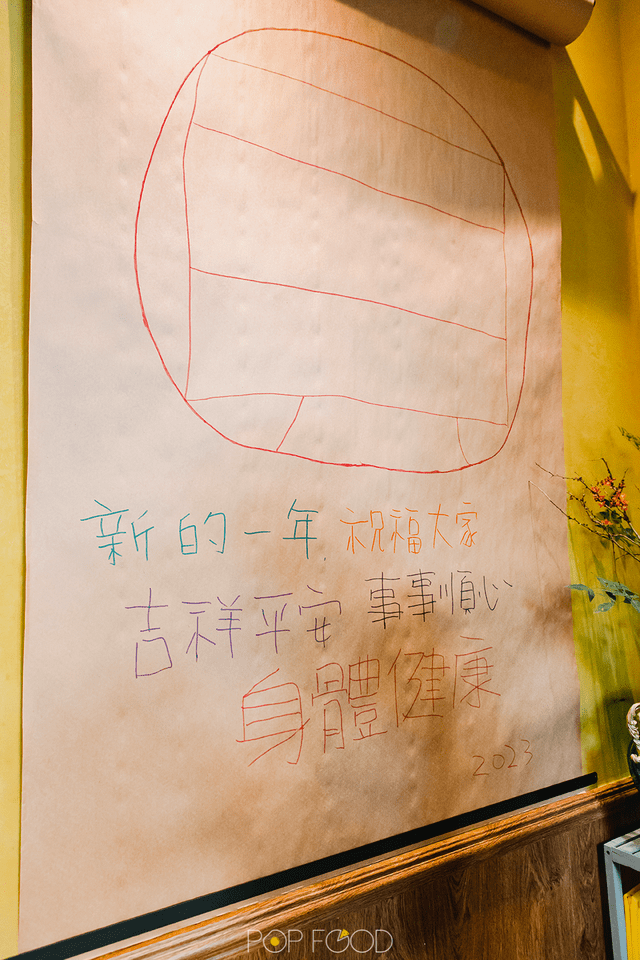 新的一年 祝福大家
吉祥平安 事事順心
身體健康
2023
POP FOOD